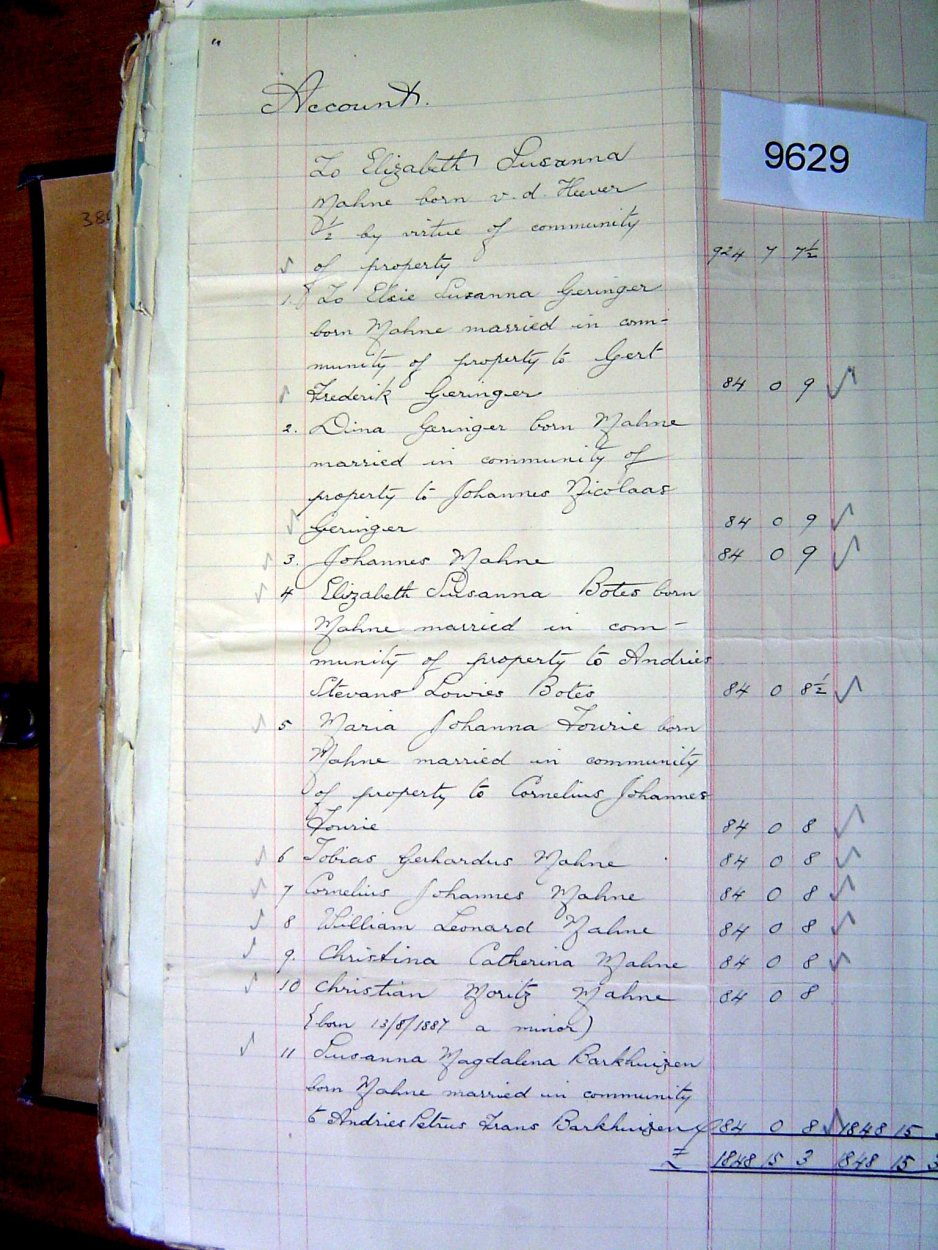 Account.
9629
To Elizabeth Susanna
Mahne born v. d. Heever
½ by virtue of community
of property 924 7 7½
1. To Elsie Susanna Geringer
born Mahne married in com-
munity of property to Gert
Frederik Geringer 84 0 9
2. Dina Geringer born Mahne
married in community of
property to Johannes Nicolaas
Geringer 84 0 9
3. Johannes Mahne 84 0 9
4 Elizabeth Susanna Botes born
Mahne married in com-
munity of property to Andries
Stevans Lowies Botes 84 0 8½
5 Maria Johanna Fourie born
Mahne married in community
of property to Cornelius Johannes
Fourie 84 0 8
6 Tobias Gerhardus Mahne 84 0 8
7 Cornelius Johannes Mahne 84 0 8
8 William Leonard Mahne 84 0 8
9. Christina Catherina Mahne 84 0 8
10 Christian Moritz Mahne 84 0 8
(born 13/8/1887 a minor)
11 Susanna Magdalena Barkhuizen
born Mahne married in community
to Andries Petrus Frans Barkhuizen 84 0 8 1848 15
£ 1848 15 3 1848 15 3